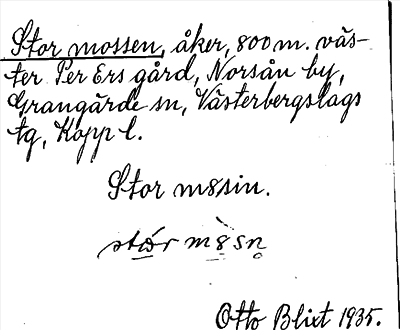 Stor mossen, åker, 800 m. väs-
ter Per Ers gård, Norsån by,
Grangärde sn, Västerbergslags
tg, Kopp l.
Stor m8sin.
Otto Blixt 1935.